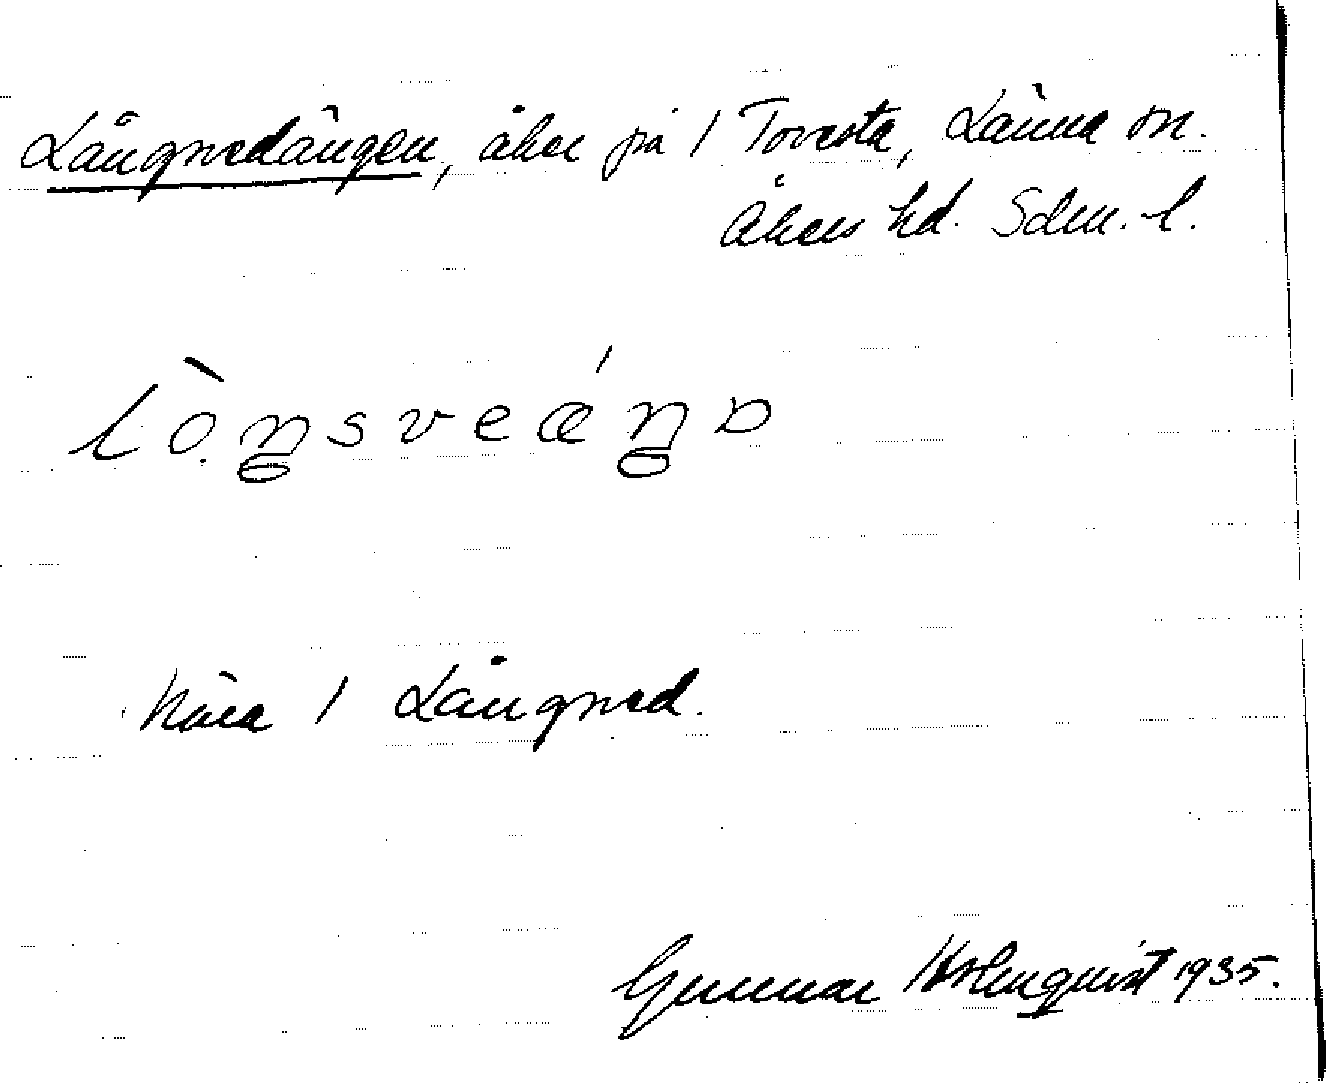 Långvedängen, åker på / Tovesta, Länna sn.
Åkers hd. Sdm. l.
lò̩ŋsveǽŋɒ
Nära / Långved.
Gunnar Holmquist 1935.